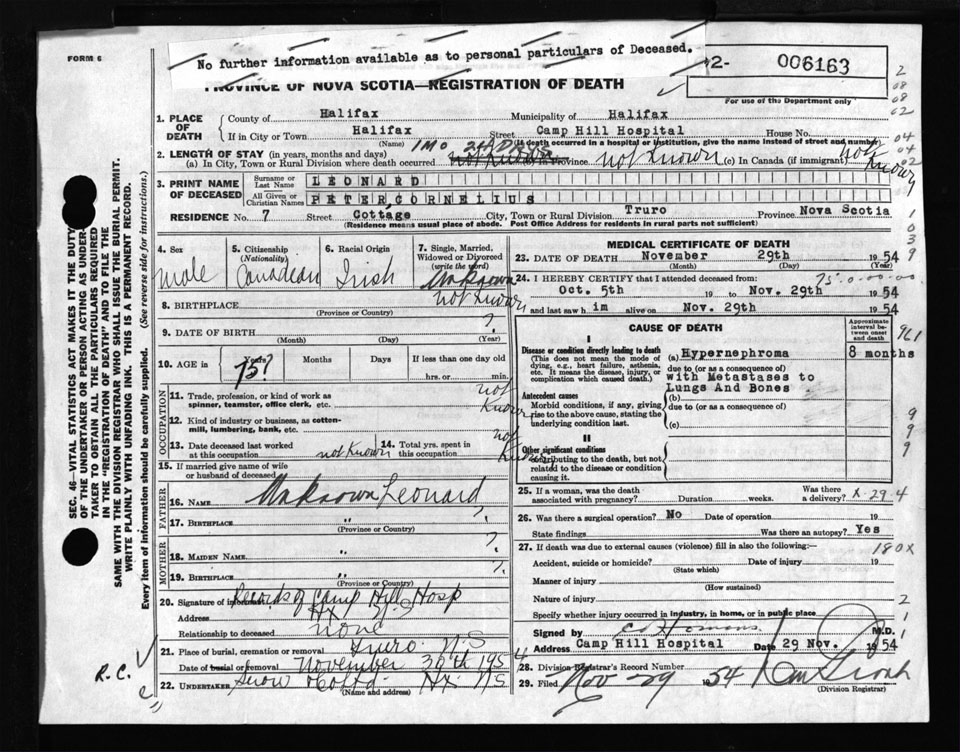 FORM 6
No further information available as to personal particulars of Deceased.
2- 006163
For use of the Department only
PROVINCE OF NOVA SCOTIA—REGISTRATION OF DEATH
SEC. 46—VITAL STATISTICS ACT MAKES IT THE DUTY
OF THE UNDERTAKER OR PERSON ACTING AS UNDER-
TAKER TO OBTAIN ALL THE PARTICULARS REQUIRED
IN THE "REGISTRATION OF DEATH" AND TO FILE THE
SAME WITH THE DIVISION REGISTRAR WHO SHALL ISSUE THE BURIAL PERMIT.
WRITE PLAINLY WITH UNFADING INK. THIS IS A PERMANENT RECORD.
Every item of information should be carefully supplied. (See reverse side for instructions.)
1. PLACE OF DEATH
County of Halifax Municipality of Halifax
If in City or Town Halifax Street Camp Hill Hospital House No.
(Name) (If death occurred in a hospital or institution, give the name instead of street and number)
2. LENGTH OF STAY (in years, months and days) 1 MO 24 DAYS
(a) In City, Town or Rural Division where death occurred not known (b) In Province not known (c) In Canada (if immigrant) not known
3. PRINT NAME OF DECEASED
Surname or Last Name LEONARD
All Given or Christian Names PETER CORNELIUS
RESIDENCE No. 7 Street Cottage City, Town or Rural Division Truro Province Nova Scotia
(Residence means usual place of abode. Post Office Address for residents in rural parts not sufficient)
4. Sex male
5. Citizenship (Nationality) Canadian
6. Racial Origin Irish
7. Single, Married, Widowed or Divorced (write the word) Unknown
8. BIRTHPLACE not known
(Province or Country)
9. DATE OF BIRTH ?
(Month) (Day) (Year)
10. AGE in Years 75? Months Days If less than one day old
hrs. or min.
OCCUPATION
11. Trade, profession, or kind of work as spinner, teamster, office clerk, etc. not known
12. Kind of industry or business, as cotton-mill, lumbering, bank, etc.
13. Date deceased last worked at this occupation not known
14. Total yrs. spent in this occupation not known
15. If married give name of wife or husband of deceased
FATHER
16. NAME Unknown Leonard
17. BIRTHPLACE " ?
(Province or Country)
MOTHER
18. MAIDEN NAME " ?
19. BIRTHPLACE " ?
(Province or Country)
20. Signature of informant Records of Camp Hill Hosp
Address Hx N.S
Relationship to deceased none
21. Place of burial, cremation or removal Truro N.S
Date of burial or removal November 30th 1954
22. UNDERTAKER Snow & Co Ltd Hx NS
(Name and address)
R.C.
MEDICAL CERTIFICATE OF DEATH
23. DATE OF DEATH November 29th 1954
(Month) (Day) (Year)
24. I HEREBY CERTIFY that I attended deceased from:
75-0-00-00
Oct. 5th 19 to Nov. 29th 1954
and last saw him alive on Nov. 29th 1954
CAUSE OF DEATH
Approximate interval between onset and death
I
Disease or condition directly leading to death
(This does not mean the mode of dying, e.g., heart failure, asthenia, etc. It means the disease, injury, or complication which caused death.)
(a) Hypernephroma 8 months
due to (or as a consequence of)
with Metastases to
Lungs And Bones.
Antecedent causes
Morbid conditions, if any, giving rise to the above cause, stating the underlying condition last.
(b)
due to (or as a consequence of)
(c)
II
Other significant conditions
contributing to the death, but not related to the disease or condition causing it.
25. If a woman, was the death associated with pregnancy? Duration weeks. Was there a delivery? X-29-4
26. Was there a surgical operation? No Date of operation 19
State findings Was there an autopsy? Yes
27. If death was due to external causes (violence) fill in also the following:—
180X
Accident, suicide or homicide? Date of injury 19
(State which)
Manner of injury
(How sustained)
Nature of injury
Specify whether injury occurred in industry, in home, or in public place
Signed by M.D.
Address Camp Hill Hospital Date 29 Nov. 1954
28. Division Registrar's Record Number
29. Filed Nov 29 1954
(Division Registrar)